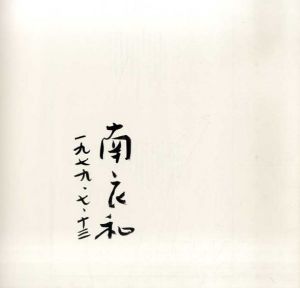 南衣和
一九七九·七·十三